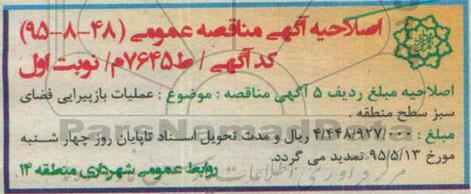 اصلاحیه آگهی مناقصه عمومی (۴۸-۸-۹۵)
کد آگهی / ط۷۶۴۵م/ نوبت اول
اصلاحیه مبلغ ردیف ۵ آگهی مناقصه : موضوع : عملیات بازپیرایی فضای
سبز سطح منطقه .
مبلغ : ۴/۴۴۸/۹۲۷/۰۰۰ ریال و مدت تحویل اسناد تاپایان روز چهار شنبه
مورخ ۹۵/۵/۱۳ تمدید می گردد.
روابط عمومی شهرداری منطقه ۱۴
ParsNamadData